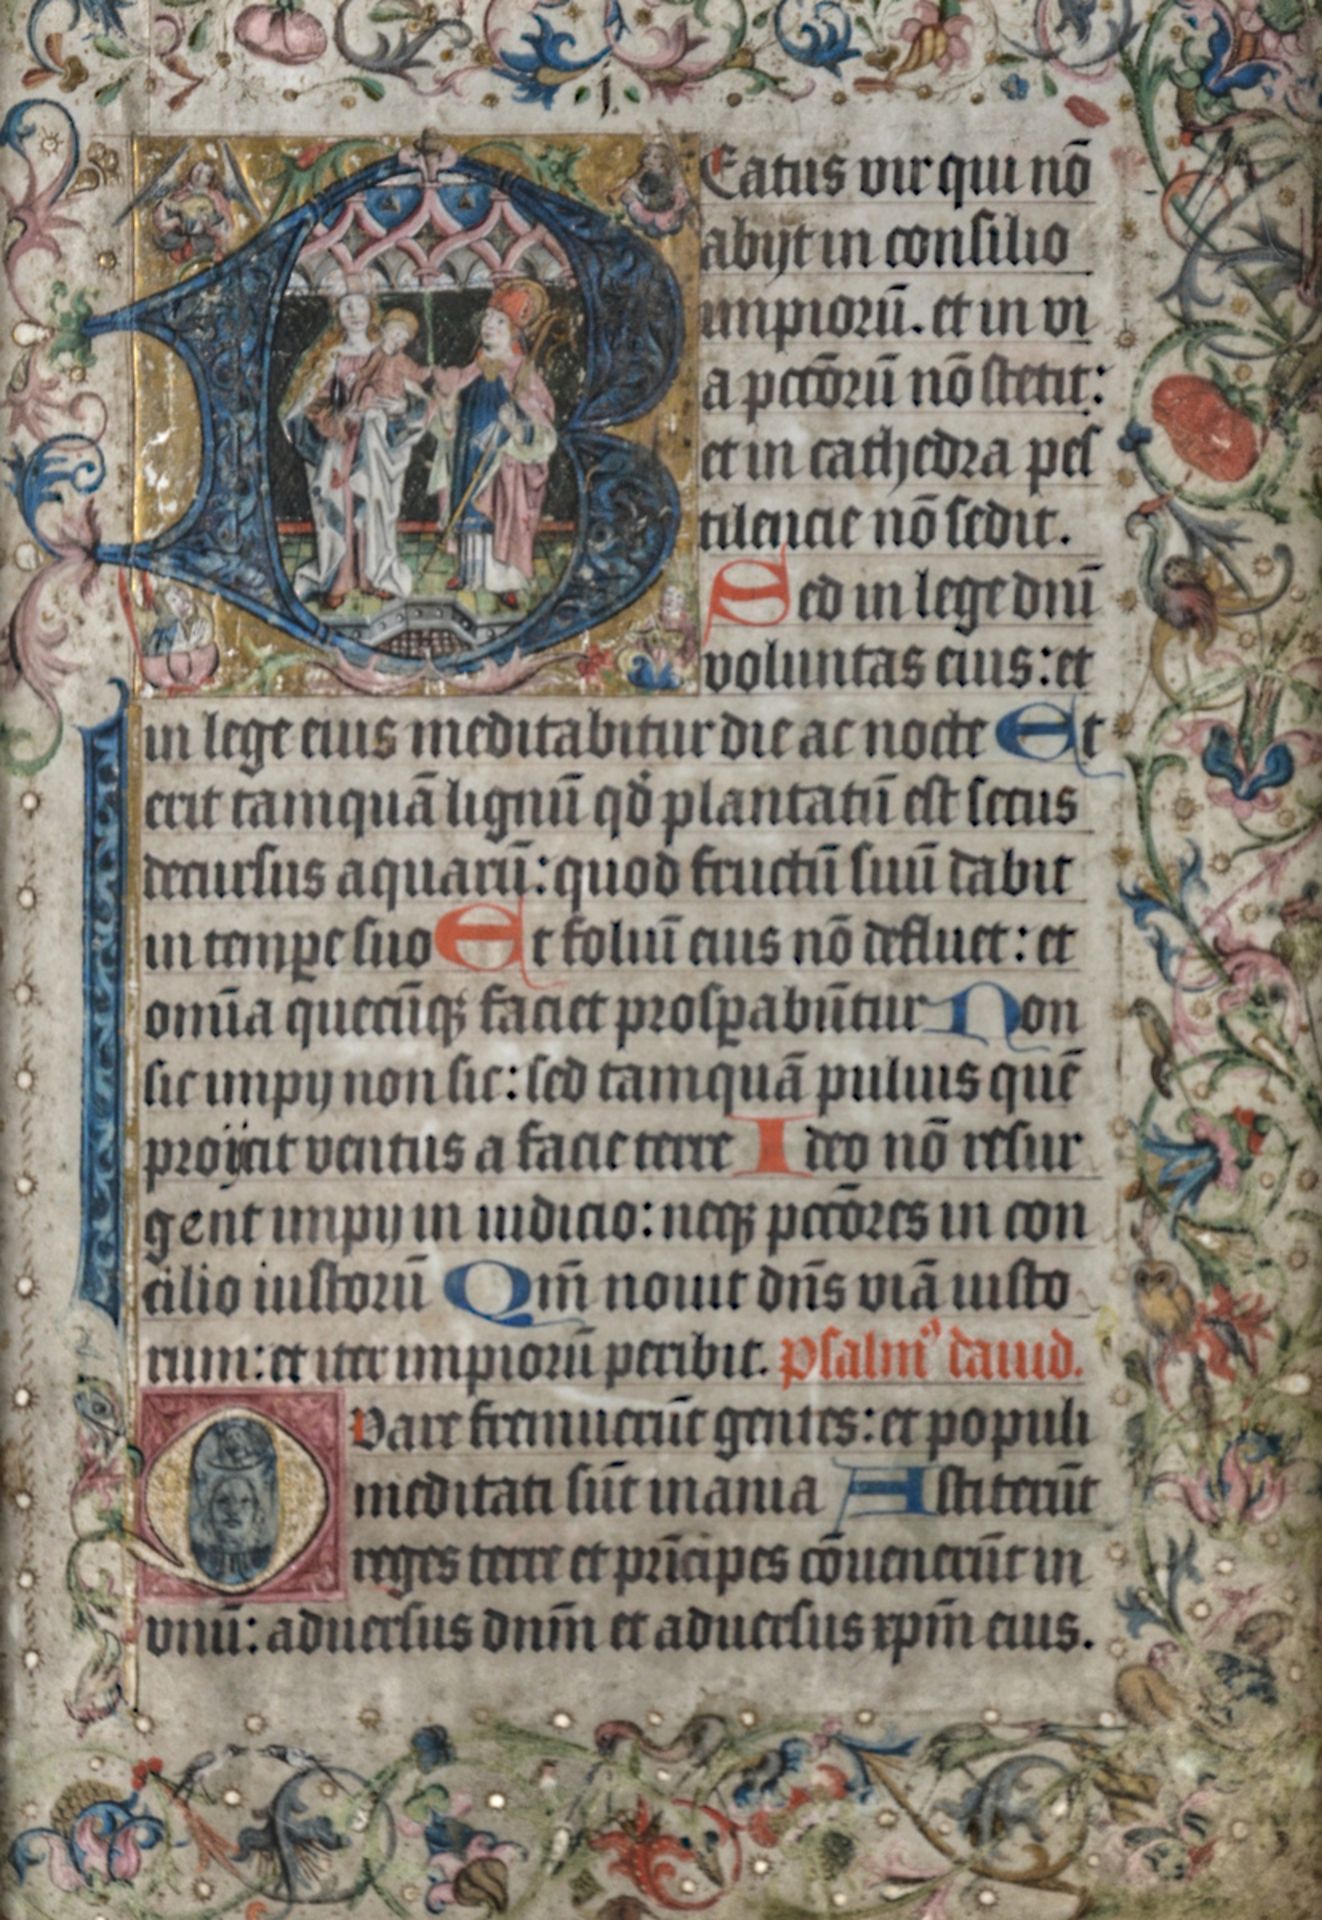 j.
Beatus vir qui nō
abijt in consilio
impiorū. et in vi
a pctōrū nō stetit:
et in cathedra pes
tilencie nō sedit.
Sed in lege dnī
voluntas eius: et
in lege eius meditabitur die ac nocte Et
erit tamquā lignū qd plantatū est secus
decursus aquarū: quod fructū suū dabit
in tempe suo Et foliū eius nō defluet: et
omīa quecūqꝫ faciet prosꝑabūtur Non
sic impij non sic: sed tamquā puluis quē
proijcit ventus a facie terre Ideo nō resur
gent impij in iudicio: neqꝫ pctōres in con
cilio iustorū Qm̄ nouit dn̄s viā iusto
rum: et iter impiorū peribit. Psalmꝰ dauid.
Quare fremuerūt gentes: et populi
meditati sūt inania Astiterūt
reges terre et prīcipes cōuenerūt in
vnū: aduersus dnm̄ et aduersus xpm̄ eius.